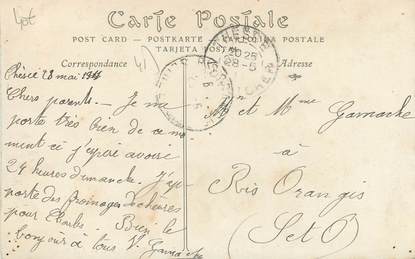 Carte Postale
POST CARD — POSTKARTE — CARTOLINA POSTALE
TARJETA POSTAL
Correspondance
Adresse
41
28 mai
Chers parents. Je me
porte très bien de ce mo
ment ci j'espère avoir
24 heures dimanche. J'ap
porte des fromages de chèvres
pour Charles Bien le
bonjour à tous V. Gamache
Mr et Mme Gamache
à
Ris Orangis
(S et O)
20 25
28-5
CHER